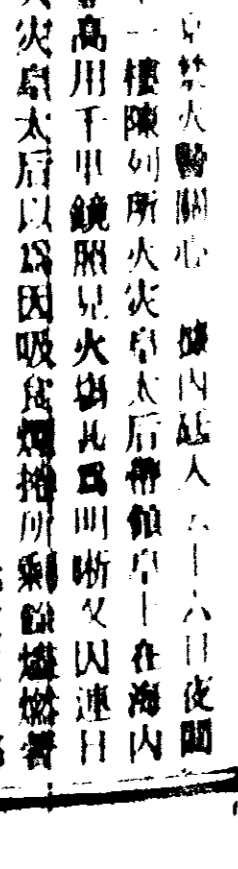 禁火驚關心 內 人 十六日夜間
一樓陳列所火災皇太后帶領皇上在海內
高川千里鏡照見火 尤爲明晰又因連日
火皇太后以爲因吸食烟捲所剩餘燼燃着